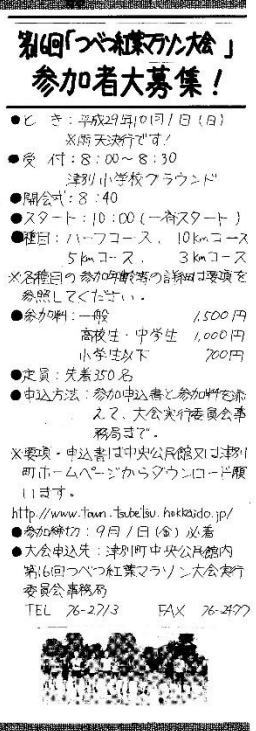 第16回「つべつ紅葉マラソン大会」
参加者大募集！
●と　き：平成29年10月1日(日)
※雨天決行です！
●受　付：8：00～8：30
津別小学校グラウンド
●開会式：8：40
●スタート：10：00(一斉スタート)
●種目：ハーフコース、10kmコース
5kmコース、3kmコース
※各種目の参加年齢等の詳細は要項を
参照してください。
●参加料：一般　1,500円
高校生・中学生　1,000円
小学生以下　700円
●定員：先着350名
●申込方法：参加申込書と参加料を添
えて、大会実行委員会事
務局まで。
※要項・申込書は中央公民館又は津別
町ホームページからダウンロード願
います。
http://www.town.tsubetsu.hokkaido.jp/
●参加締切：9月1日(金)必着
●大会申込先：津別町中央公民館内
第16回つべつ紅葉マラソン大会実行
委員会事務局
TEL 76-2713　FAX 76-2477